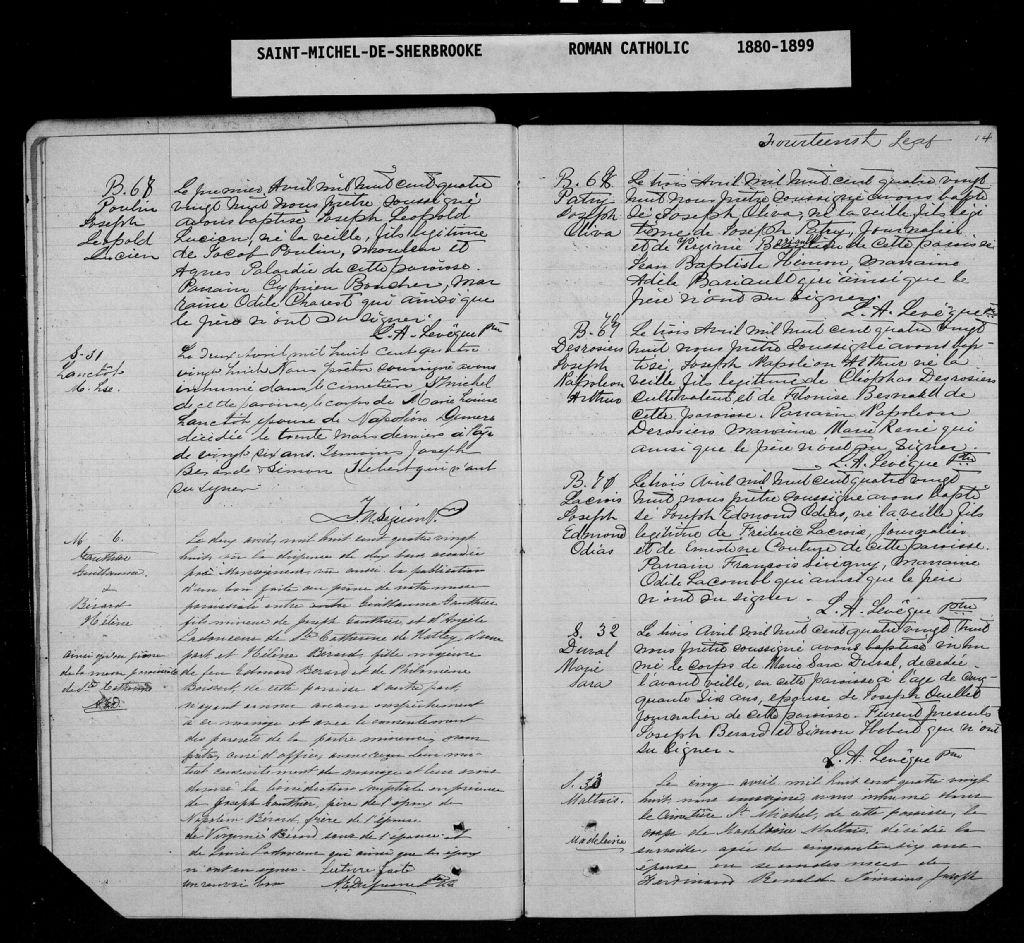 SAINT-MICHEL-DE-SHERBROOKE ROMAN CATHOLIC 1880-1899
B. 67
Poulin
Joseph
Léopold
Lucien
Le premier, Avril mil huit cent quatre
vingt huit nous prêtre soussigné
avons baptisé Joseph Léopold
Lucien, né la veille, fils légitime
de Jacob Poulin, mouleur et
Agnes Palardie de cette paroisse.
Parrain Cyprien Boucher, mar
raine Odile Charest qui ainsi que
le père n'ont su signer.
L. A. Levêque Ptre
S-31
Lanctôt
M. Lse.
Le deux Avril mil huit cent quatre
vingt huit Nous prêtre soussigné avons
inhumé dans le cimetière St Michel
de cette paroisse, le corps de Marie Louise
Lanctôt épouse de Napoléon
décédée le trente mars dernier à l'âge
de vingt six ans. Témoins Joseph
Berard & Simon Hebert qui n'ont
su signer
M 6.
Gauthier
Guillaume.
&
Bérard
Hélène
Le deux avril, mil huit cent quatre vingt
huit, vu la dispense de deux bans accordée
par Monseigneur vu aussi la publication
d'un ban faite au prône de notre messe
paroissiale entre Guillaume Gauthier
fils mineur de Joseph Gauthier et d'Angèle
Ladouceur de Ste Catherine de Hatley, d'une
part et Hélène Berard, fille mineure
de feu Edouard Berard et de Philomène
de cette paroisse d'autre part,
n'ayant connu aucun empêchement
à ce mariage et avec le consentement
des parents de la partie mineure, nous
prêtre, avons reçu leur mu-
tuel consentement de mariage et leur avons
donné la bénédiction nuptiale en présence
de Joseph Gauthier, père de l'époux de
Napoléon Bérard, frère de l'épouse
de Virginie Bérard soeur de l'épouse et
de Ladouceur qui ainsi que les époux
n'ont su signer. Lecture faite
ainsi qu'au prône
de la messe paroissiale
de Ste Catherine
Fourteenth Leaf 14
B. 68
Patry
Joseph
Oliva
Le trois Avril mil huit cent quatre vingt
huit nous prêtre soussigné avons bapti
sé Joseph Oliva, né la veille fils légi
time de Joseph Patry, Journalier
et de Virginie de cette paroisse
Jean Baptiste Hémon, marraine
Adèle Bariault qui ainsi que le
père n'ont su signer.
L. A. Levêque Ptre
B. 69
Desrosiers
Joseph
Napoléon
Arthur
Le trois Avril mil huit cent quatre vingt
huit nous prêtre soussigné avons bap-
tisé, Joseph Napoléon Arthur né la
veille fils légitime de Cléophas Desrosiers
Cultivateur et de de
cette paroisse. Parrain Napoleon
Desrosiers marraine Marie René qui
ainsi que le père n'ont su signer.
L. A. Levêque Ptre
B. 70
Lacroix
Joseph
Edmond
Odias
Le trois Avril mil huit cent quatre vingt
huit nous prêtre soussigné avons bapti
sé Joseph Edmond Odias, né la veille fils
légitime de Fréderic Lacroix, Journalier
et de Ernestine Couture de cette paroisse.
Parrain François Sévigny, marraine
Odile Lacombe qui ainsi que le père
n'ont su signer.
L. A. Levêque Ptre
S. 32
Duval
Marie
Sara
Le trois Avril mil huit cent quatre vingt huit
nous prêtre soussigné avons inhu
mé le corps de Marie Sara Duval, décédée
l'avant veille, en cette paroisse à l'age de cin-
quante Six ans, épouse de Joseph Ouellet
Journalier de cette paroisse. Furent présents
Joseph Berard et Simon Hebert qui n'ont
su signer.
L. A. Levêque Ptre
S. 33
Maltais.
Madeleine
Le cinq avril mil huit cent quatre vingt
huit nous soussigné, avons inhumé dans
le cimetière St Michel, de cette paroisse, le
corps de Madeleine Maltais, décédée la
surveille, agée de cinquante dix ans
épouse en secondes noces de
Ferdinand Renald. Témoins Joseph